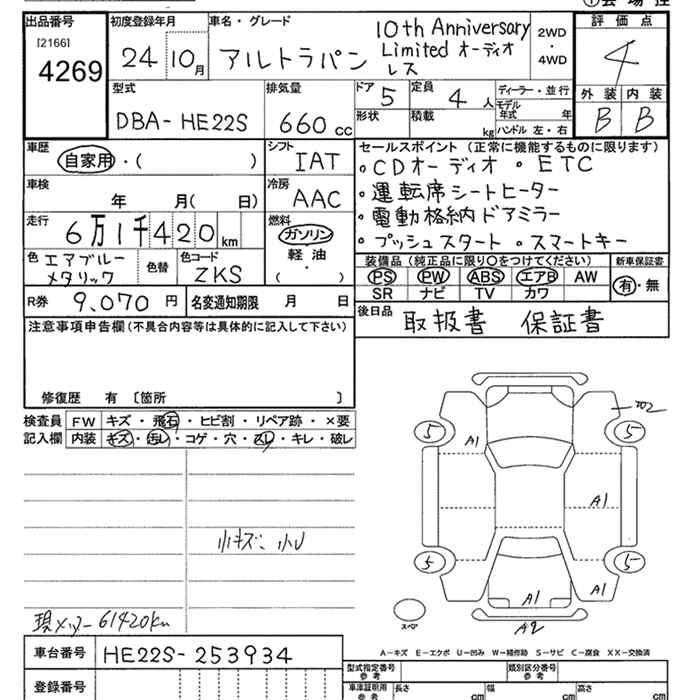 ①会場控
出品番号
[2166]
4269
初度登録年月
24 10月
車名・グレード
アルトラパン 10th Anniversary Limited オーディオレス
2WD
・
4WD
評価点
4
外装 内装
B B
型式
DBA-HE22S
排気量
660cc
ドア
5
定員
4人
形状
積載
kg
ディーラー・並行
モデル年式 年
ハンドル 左・右
車歴
自家用・( )
シフト
IAT
車検
年 月( 日)
冷房
AAC
走行
6万1千420km
燃料
ガソリン
軽油
・
( )
色
エアブルーメタリック
色替
色コード
ZKS
R券 9,070円
名変通知期限 月 日
セールスポイント(正常に機能するものに限ります)
・CDオーディオ ・ETC
・運転席シートヒーター
・電動格納ドアミラー
・プッシュスタート ・スマートキー
装備品(純正品に限り○をつけてください)
PS PW ABS エアB AW
SR ナビ TV カワ
新車保証書
有・無
後日品
取扱書 保証書
注意事項申告欄(不具合内容等は具体的に記入して下さい)
修復歴 有 〔箇所 〕
検査員記入欄
FW キズ・飛石・ヒビ割・リペア跡・×要
内装 キズ・汚れ・コゲ・穴・スレ・キレ・破レ
小キズ、小U
現メーター61420km
5 5
A1
A1
5 5
A1
A1
A2
スペア
A-キズ E-エクボ U-凹み W-補修跡 S-サビ C-腐食 XX-交換済
車台番号 HE22S-253934
登録番号
型式指定番号
参考
類別区分番号
参考
車庫証明用
参考
長さ cm
幅 cm
高さ cm